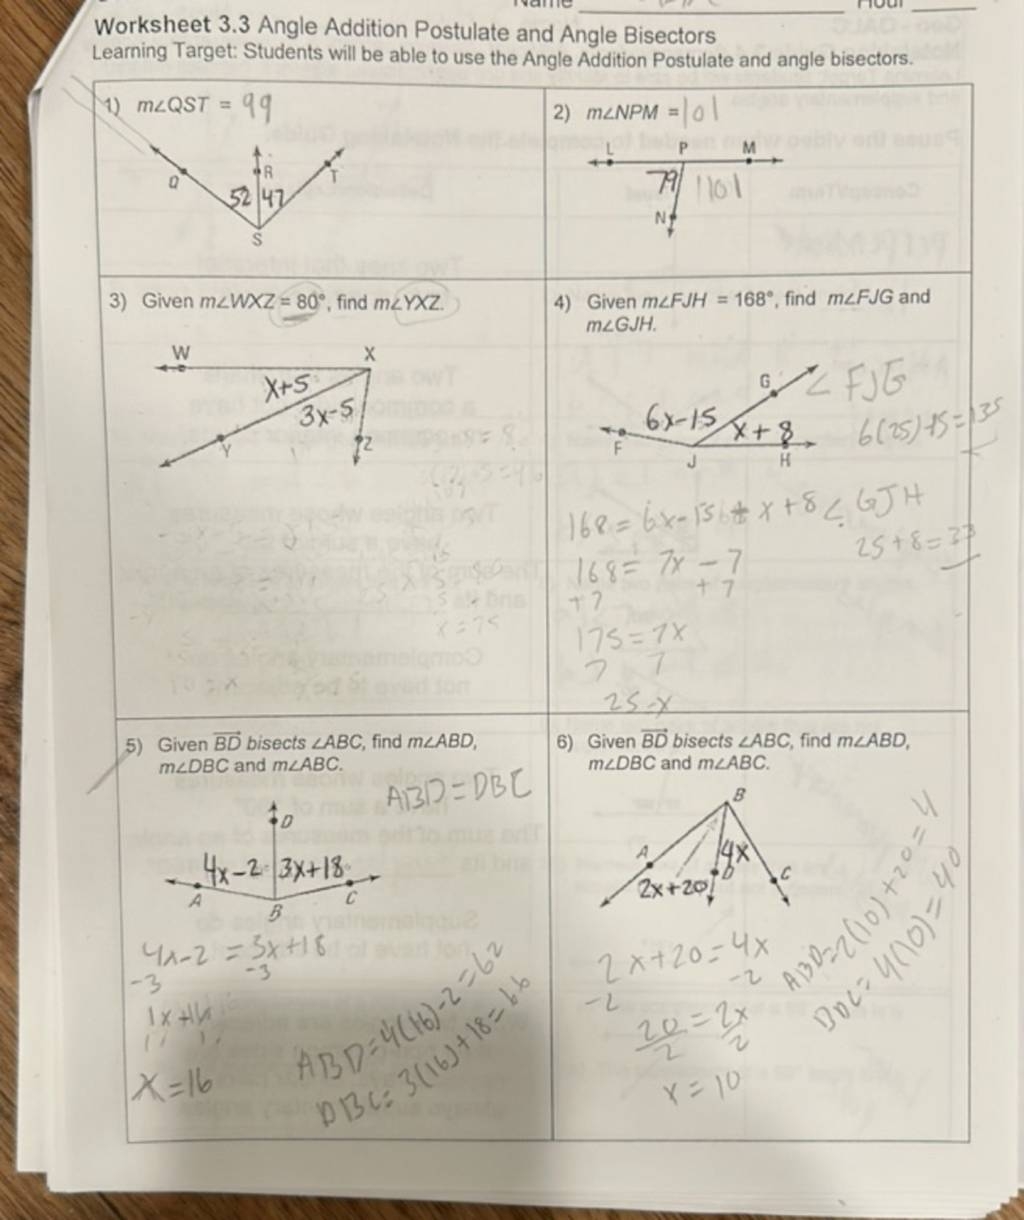 Name
Hour
Worksheet 3.3 Angle Addition Postulate and Angle Bisectors
Learning Target: Students will be able to use the Angle Addition Postulate and angle bisectors.
1) m∠QST = 99
Q
R
T
52 47
S
2) m∠NPM = 101
L P M
79 101
N
3) Given m∠WXZ = 80°, find m∠YXZ.
W X
x+5
3x-5
Y Z
4) Given m∠FJH = 168°, find m∠FJG and
m∠GJH.
G
∠FJG
6x-15
x+8
F J H
6(25)-15=135
168= 6x-15 + x+8
∠GJH
25+8=33
168= 7x - 7
+7 +7
175=7x
7 7
25=x
5) Given BD bisects ∠ABC, find m∠ABD,
m∠DBC and m∠ABC.
ABD=DBC
D
4x-2 3x+18
A B C
4x-2 = 3x+18
-3 -3
x=16
ABD=4(16)-2=62
DBC=3(16)+18=66
6) Given BD bisects ∠ABC, find m∠ABD,
m∠DBC and m∠ABC.
B
A 4x
D C
2x+20
2x+20=4x
-2 -2
20=2x
2 2
x=10
ABD=2(10)+20=4
DBC=4(10)=40